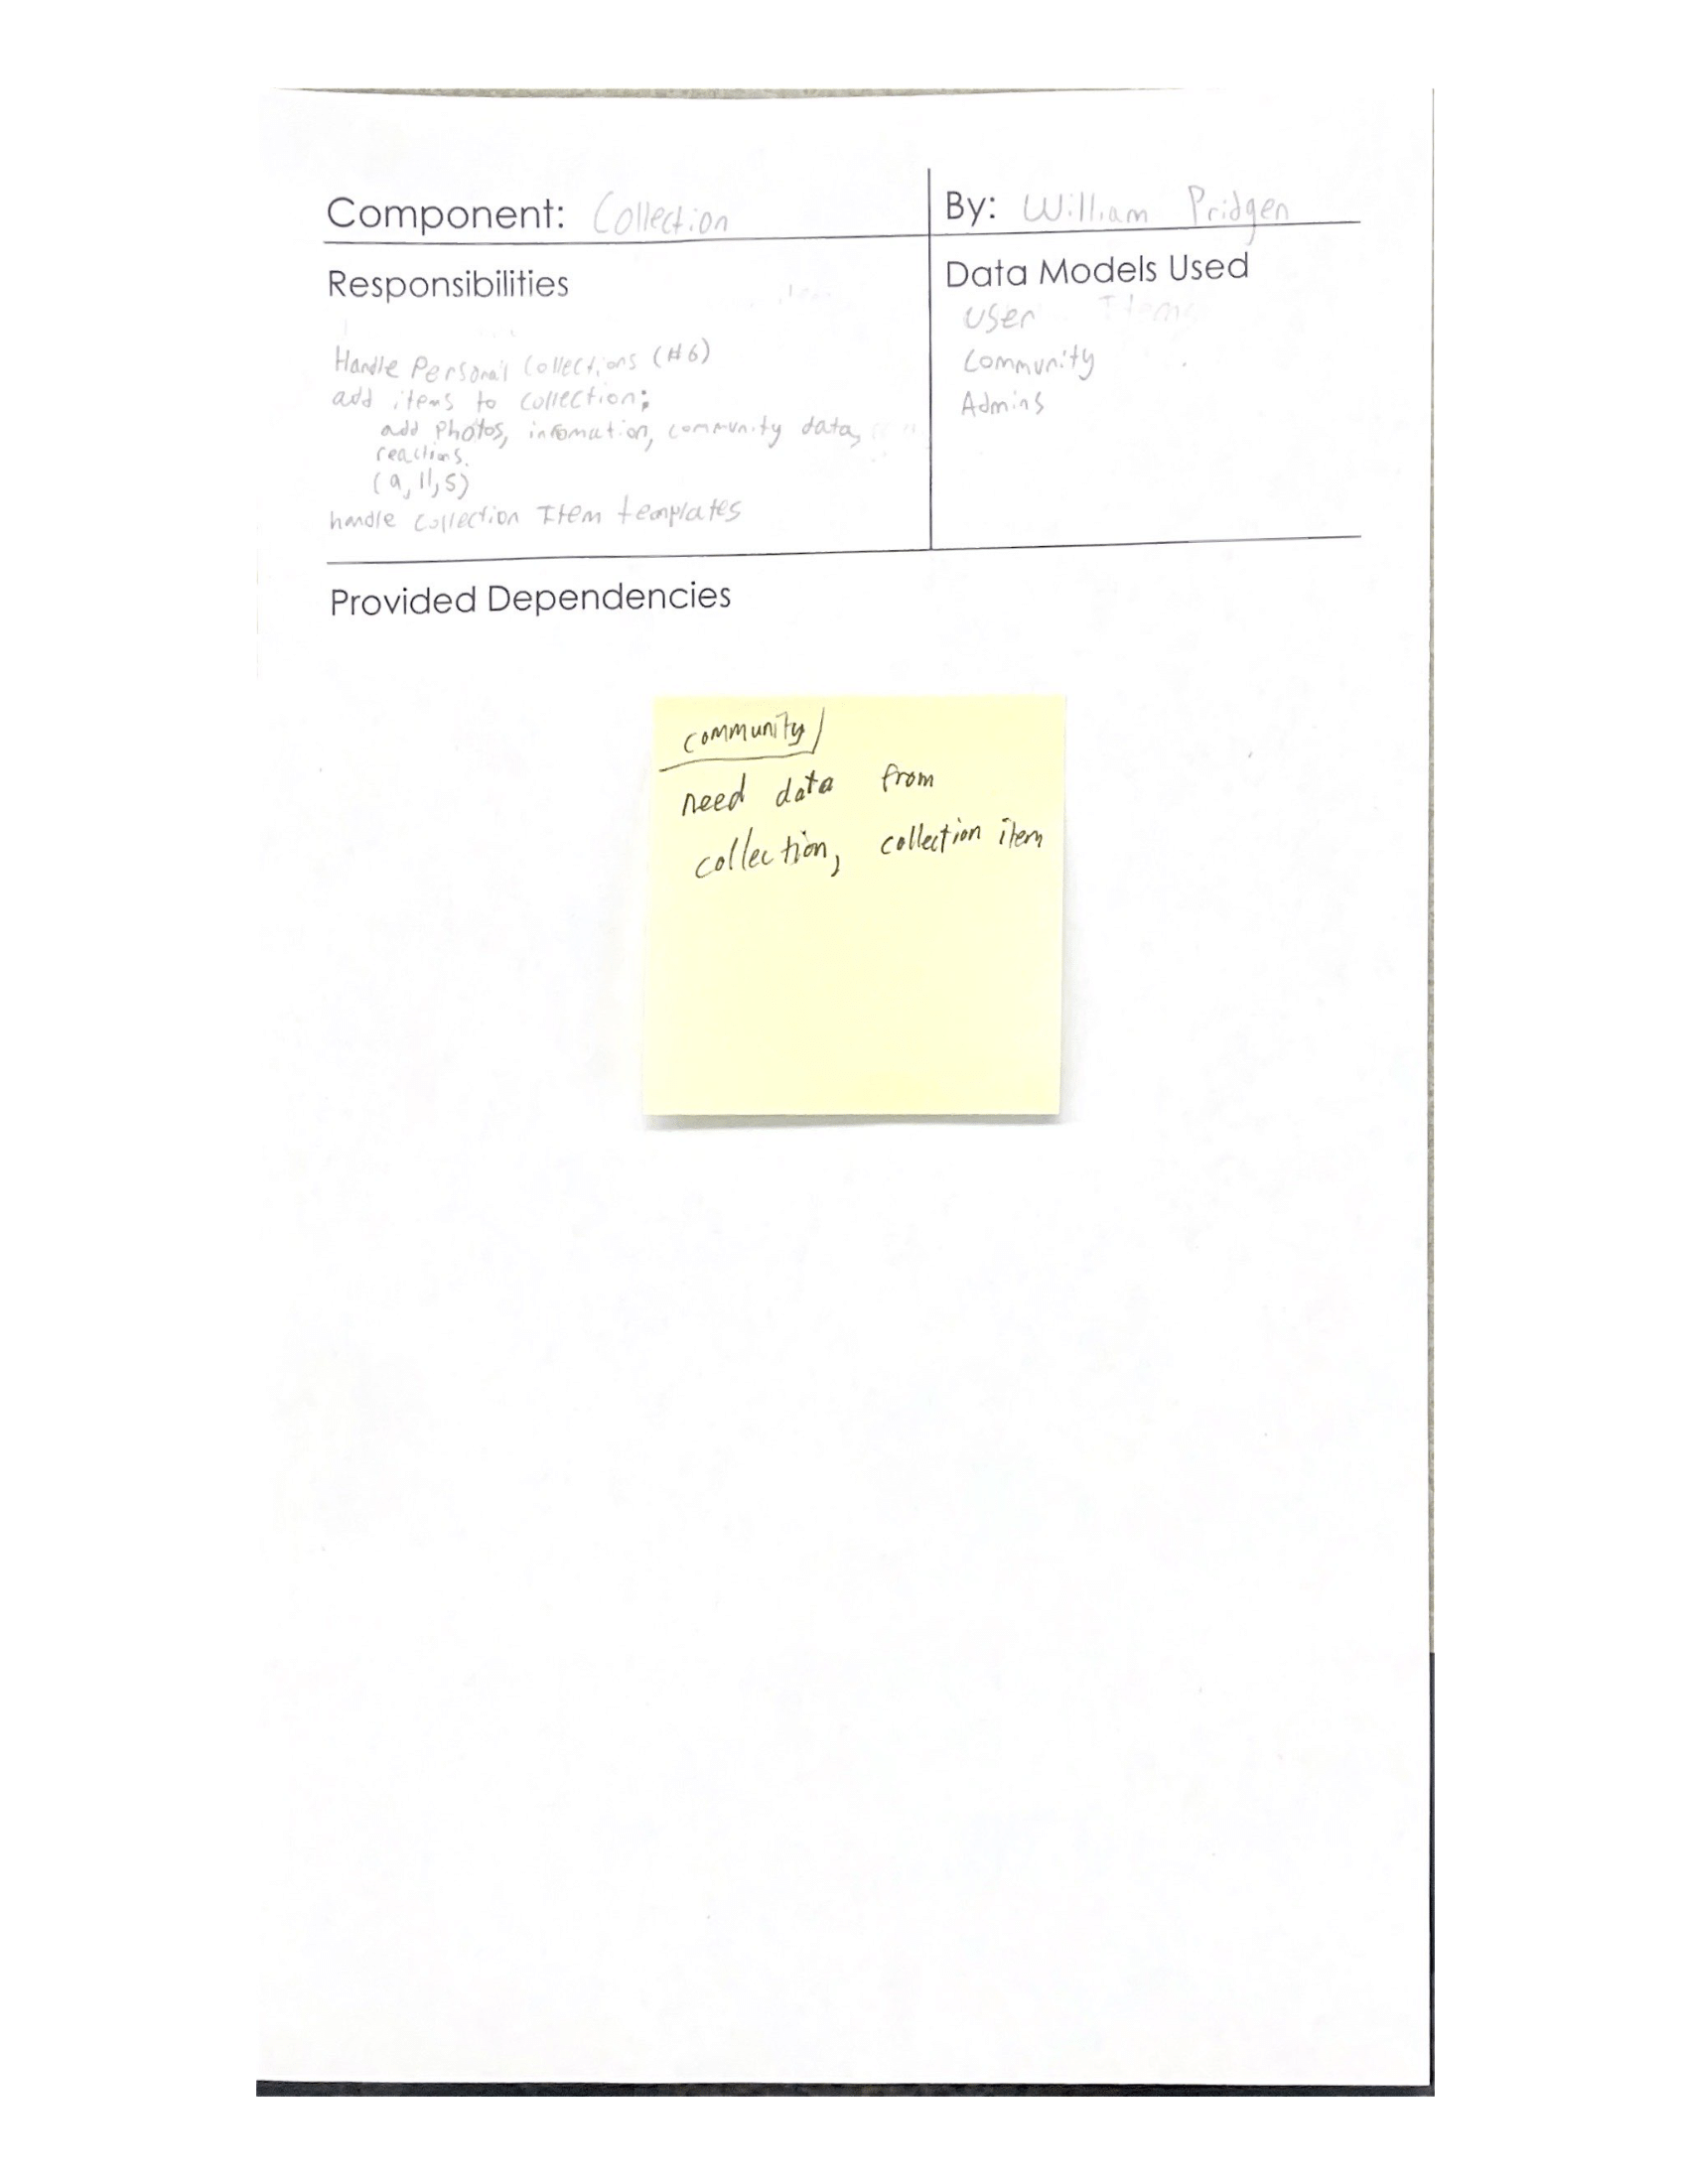 Component: Collection
By: William Pridgen
Responsibilities
Handle Personal Collections (#6)
add items to collection;
add Photos, infomation, community data,
reactions.
(9, 11, 5)
handle collection Item templates
Data Models Used
User Items
Community
Admins
Provided Dependencies
community
need data from
collection, collection item